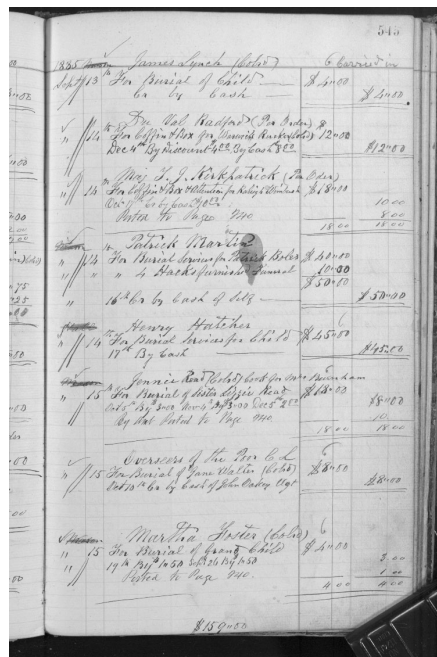 545
1885 James Lynch (Cold) 6 Carried in
Sept 13th For Burial of Child $4.00
Cr by Cash $4.00
Dr. Val Radford (Per Order) 8
" 14th For Coffin & Box for (Cold) 12.00
Dec 4th By Discount 4.00 By Cash 8.00 $12.00
Maj T. J. Kirkpatrick (Per Order)
" 14th For Coffin & Box & Attention for $18.00
Cr by Cash 10.00 10 00
Posted to Page 740 8 00
18 00 18 00
Patrick Martin
" 14th For Burial Services for Patrick $40.00
" " " 4 Hacks furnished Funeral 10.00
$50.00
16th Cr by Cash of Self $50.00
Henry Hatcher
" 14th For Burial Services for Child $45.00
17th By Cash $45.00
Jennie Read (Cold) Cook for Mrs Burnham
" 15th For Burial of Sister Lizzie Read $18.00
Oct 5th By 3.00 Nov By 3.00 Dec 5th 2.00 $8.00
By Amt Posted to Page 740 10
18 00 18 00
Overseers of the Poor C L
" 15 For Burial of Jane Walter (Cold) $8.00
Oct 10th Cr by Cash of John Oakey Agt $8.00
Martha Foster (Cold)
" 15 For Burial of Grand Child $4.00
19th By 1.50 Sept 26 By 1.50 3.00
Posted to Page 740. 1 00
4 00 4 00
$159.00